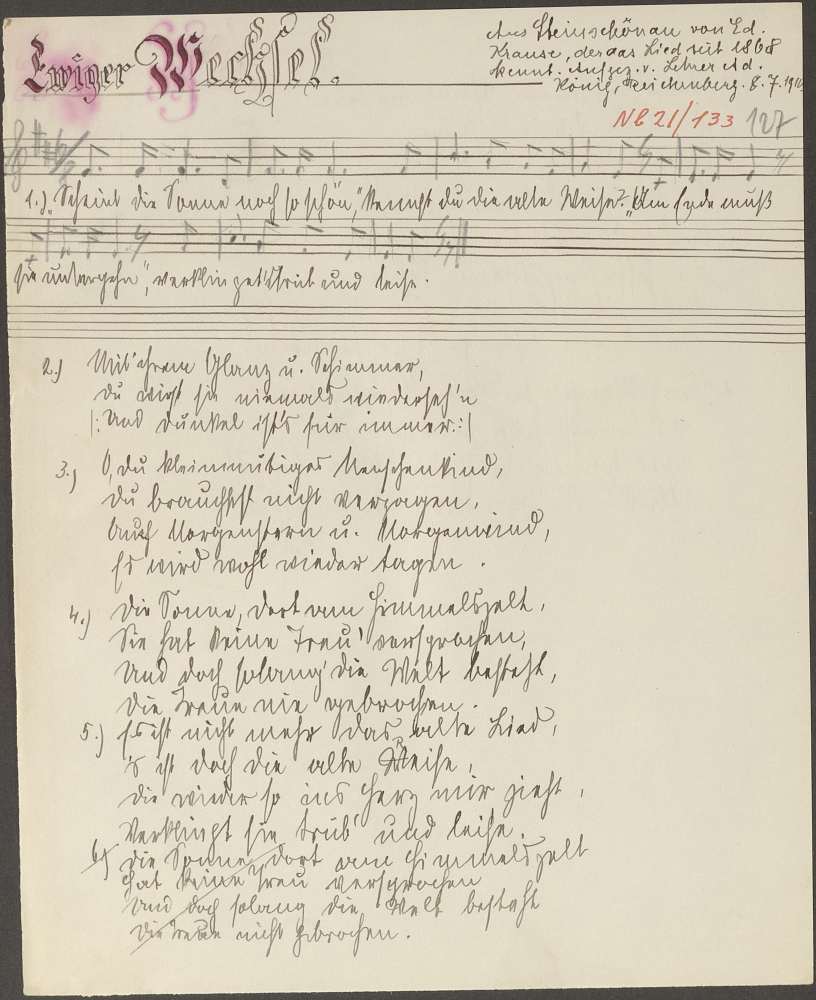 Ewiger Wechsel.
Aus Steinschönau von Ed.
Krause, der das Lied seit 1868
kennt. Aufgez. v. Lehrer Ad.
König, Reichenberg. 8.7.191
NB 21/133 127
1.) „Scheint die Sonne noch so schön,“ kennst du die alte Weise? „Am Ende muß
sie untergehn“, verklinget's trüb und leise.
2.) Mit ihrem Glanz u. Schimmer,
du wirst sie niemals wiederseh'n
|: Und dunkel ist's für immer. :|
3.) O, du kleinmütiges Menschenkind,
du brauchst nicht verzagen,
Auf Morgenstern u. Morgenwind,
Es wird wohl wieder tagen.
4.) Die Sonne, dort am Himmelszelt,
Sie hat keine Treu' versprochen,
Und doch solang' die Welt besteht,
die Treue nie gebrochen.
5.) Es ist nicht mehr das alte Lied,
's ist doch die alte Weise,
die wieder so ins Herz mir zieht,
Verklingt sie trüb' und leise.
6.) Die Sonne, dort am Himmelszelt
hat keine Treu versprochen
Und doch solang die Welt besteht
die Treue nicht gebrochen.